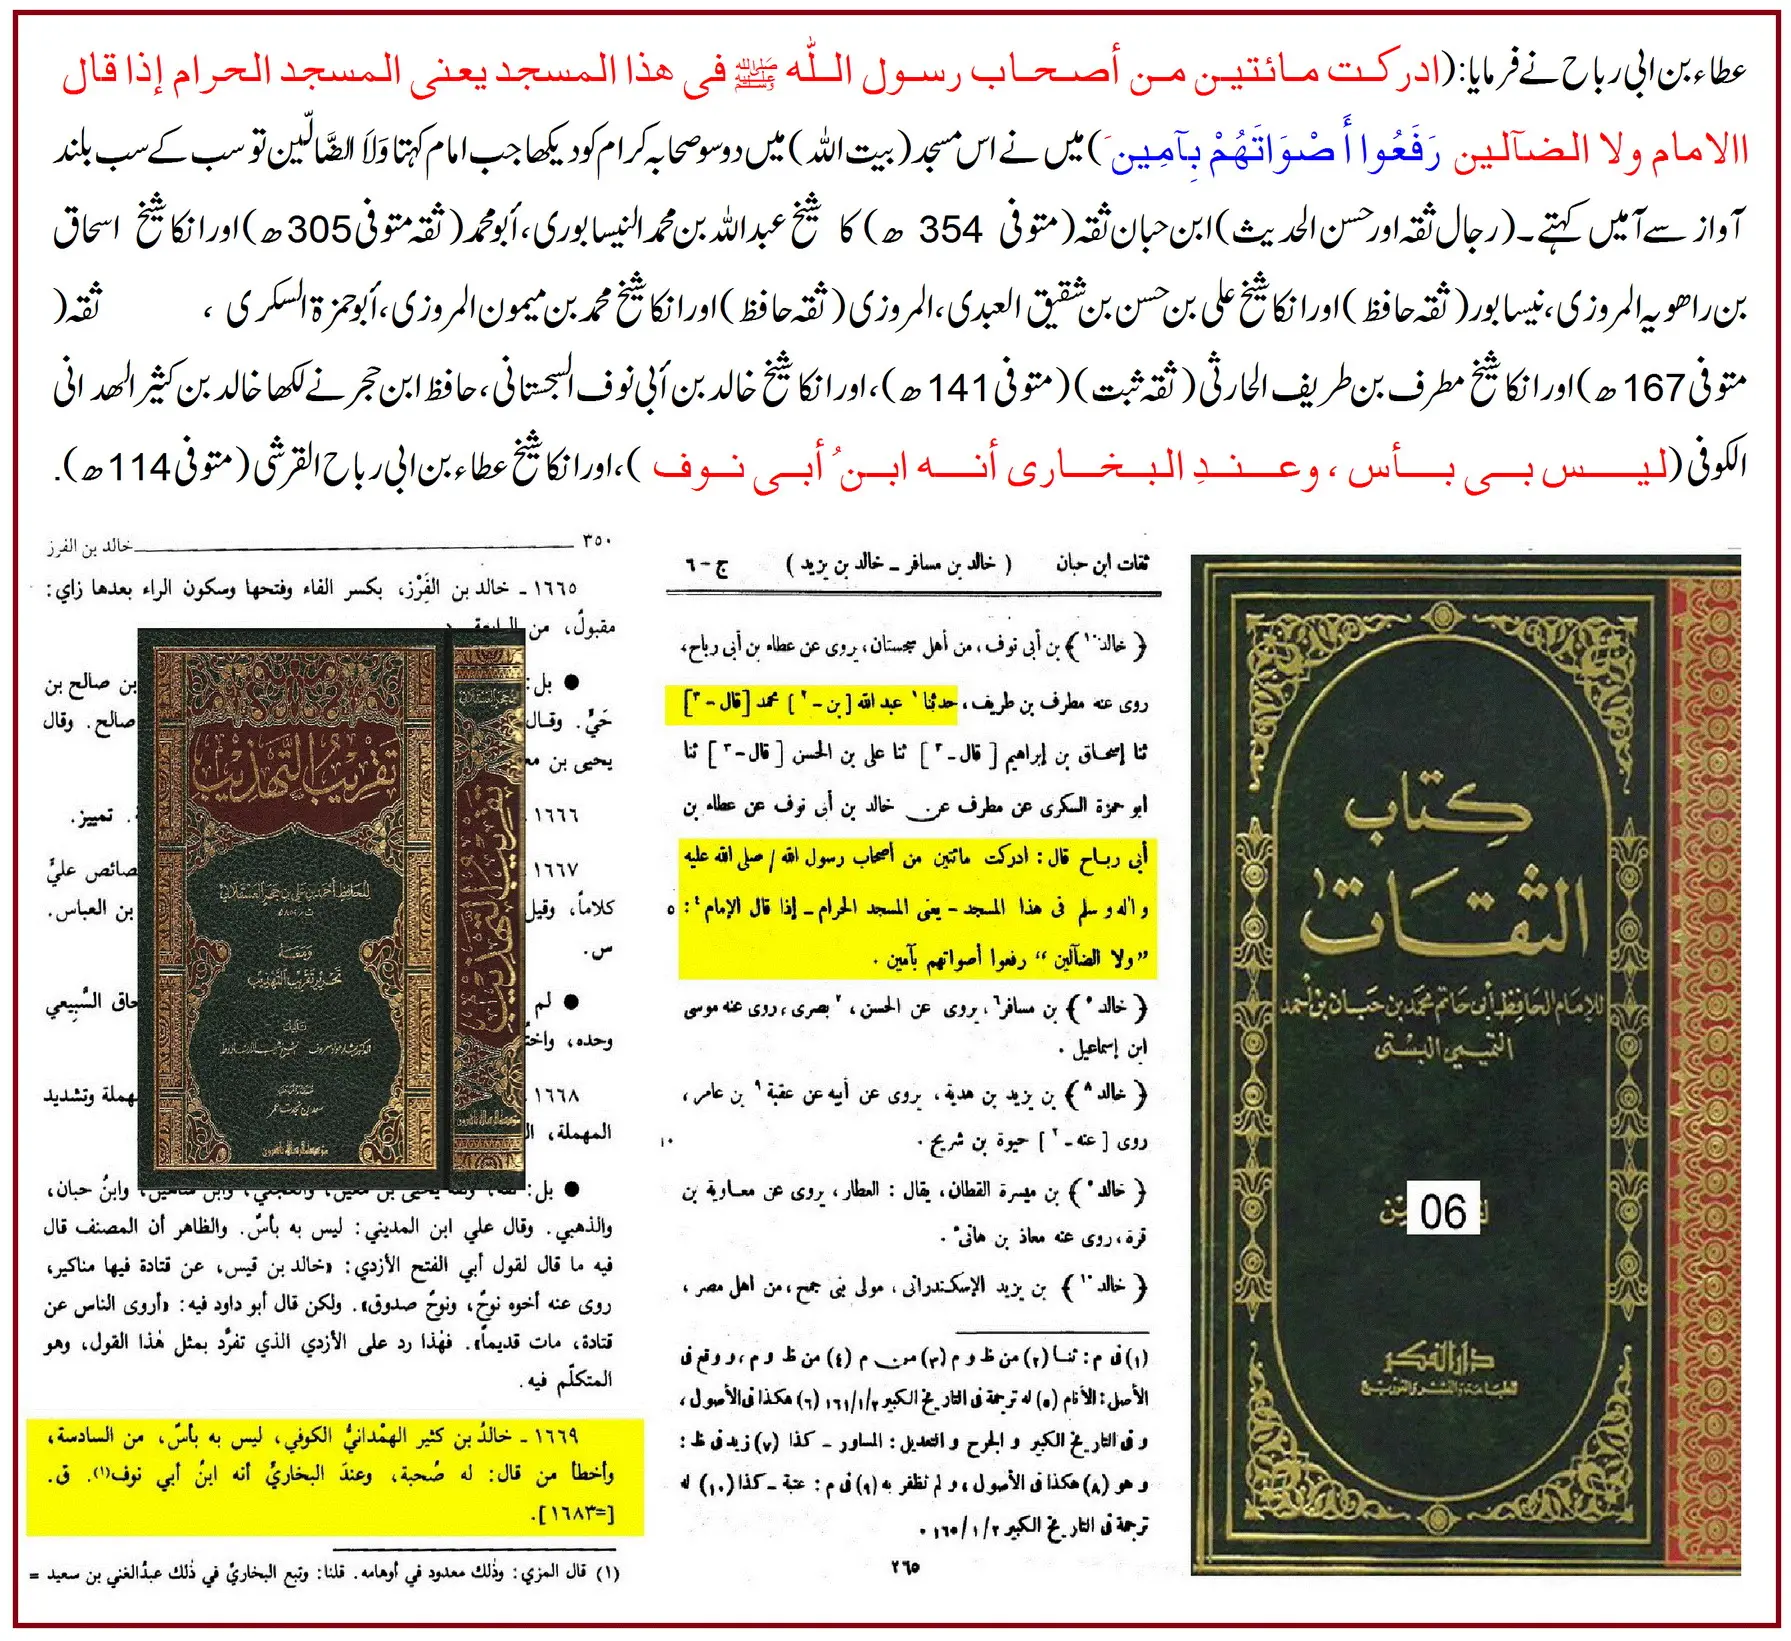 عطاء بن ابی رباح نے فرمایا:(ادرکت مائتین من أصحاب رسول اللّٰه ﷺ فی هذا المسجد یعنی المسجد الحرام إذا قال
االامام ولا الضآلین رَفَعُوا أَصْوَاتَهُمْ بِآمِین َ)میں نے اس مسجد(بیت اللہ)میں دوسو صحابہ کرام کو دیکھا جب امام کہتا وَلَا الضَّالّین تو سب کے سب بلند
آواز سے آمیں کہتے۔(رجال ثقہ اور حسن الحدیث)ابن حبان ثقہ(متوفی 354 ھ)کا شیخ عبداللہ بن محمد النیسابوری،أبو محمد(ثقہ متوفی 305ھ)اور انکا شیخ اسحاق
بن راھویہ المروزی،نیسابور(ثقہ حافظ)اور انکا شیخ علی بن حسن بن شقیق العبدی،المروزی(ثقہ حافظ)اور انکا شیخ محمد بن میمون المروزی،أبو حمزۃ السکری ، ثقہ(
متوفی 167ھ)اور انکا شیخ مطرف بن طریف الحارثی(ثقہ ثبت)(متوفی 141ھ)،اور انکا شیخ خالد بن أبی نوف السجستانی،حافظ ابن حجر نے لکھا خالد بن کثیر الھدانی
الکوفی(لیس بی بأس ، وعندِ البخاری أنه ابنُ أبی نوف )،اور انکا شیخ عطاء بن ابی رباح القرشی(متوفی 114ھ).
٣٥٠ خالد بن الفرز
١٦٦٥ ـ خالد بن الفَِرْز، بكسر الفاء وفتحها وسكون الراء بعدها زاي:
مقبولٌ، من
● بل: بن صالح بن
حَيٍّ. وقال صالح. وقال
يحيى بن
١٦٦٦ تمييز.
١٦٦٧ خصائص عليٍّ
كلاماً، وقيل بن العباس.
س.
● لم السَّبِيعي
وحده،
١٦٦٨ وتشديد
المهملة،
● بل: وابنُ حبان،
والذهبي. وقال علي ابن المديني: ليس به بأسٌ. والظاهر أن المصنف قال
فيه ما قال لقول أبي الفتح الأزدي: «خالد بن قيس، عن قتادة فيها مناكير،
روى عنه أخوه نوحٌ، ونوحٌ صدوق». ولكن قال أبو داود فيه: «أروى الناس عن
قتادة، مات قديماً». فهٰذا رد على الأزدي الذي تفرَّد بمثل هٰذا القول، وهو
المتكلَّم فيه.
١٦٦٩ ـ خالدُ بن كثير الهمْدانيُّ الكوفي، ليس به بأسٌ، من السادسة،
وأخطأ من قال: له صُحبة، وعندَ البخاريِّ أنه ابنُ أبي نوف(١). ق.
[=١٦٨٣].
(١) قال المزي: وذٰلك معدود في أوهامه. قلنا: وتبع البخاريَّ في ذٰلك عبدُالغني بن سعيد =
تقريب التهذيب
للحافظ أحمد بن علي بن حجر العسقلاني
ومعه
تحرير تقريب التهذيب
تأليف
تقريب التهذيب
ثقات ابن حبان ( خالد بن مسافر ـ خالد بن يزيد ) ج - ٦
﴿ خالد ١٠ ﴾ بن أبى نوف ، من أهل سجستان ، يروى عن عطاء بن أبى رباح،
روى عنه مطرف بن طريف، حدثنا ١ عبد الله [ بن - ٢ ] محمد [قال - ٣]
ثنا إسحاق بن إبراهيم [ قال - ٣ ] ثنا على بن الحسن [ قال - ٣ ] ثنا
ابو حمزة السكرى عن مطرف عن خالد بن أبى نوف عن عطاء بن
أبى رباح قال : ادركت مائتين من أصحاب رسول الله / صلى الله عليه
و آله و سلم فى هذا المسجد - يعنى المسجد الحرام - إذا قال الإمام ٤ : ٥
” ولا الضآلين “ رفعوا أصواتهم بآمين .
﴿ خالد ٥ ﴾ بن مسافر ٦ ، يروى عن الحسن ، ٧ بصرى ، روى عنه موسى
ابن إسماعيل .
﴿ خالد ٨ ﴾ بن يزيد بن هدية ، يروى عن أبيه عن عقبة ٩ بن عامر ،
روى [ عنه - ٢ ] حيوة بن شريح . ١٠
﴿ خالد ٥ ﴾ بن ميسرة القطان ، يقال : العطار ، يروى عن معاوية بن
قرة ، روى عنه معاذ بن هانئ .
﴿ خالد ١٠ ﴾ بن يزيد الإسكندرانى ، مولى بنى جمح ، من اهل مصر ،
(١) فى م : ثنا (٢) من ظ و م (٣) من م (٤) من ظ و م ، و وقع فى
الأصل : الأنام (٥) له ترجمة فى التاريخ الكبير ١٦١/١/٢ (٦) هكذا فى الأصول ،
و فى التاريخ الكبير و الجرح و التعديل : المساور - كذا (٧) زيد فى ظ :
و هو (٨) هكذا فى الأصول ، و لم نظفر به (٩) فى م : عتبة - كذا (١٠) له
ترجمة فى التاريخ الكبير ١٦٥/١/٢ .
٢٦٥
كتاب
الثقات
للإمام الحافظ أبي حاتم محمد بن حبان بن أحمد
التميمي البستي
06
دار الفكر
للطباعة والنشر والتوزيع